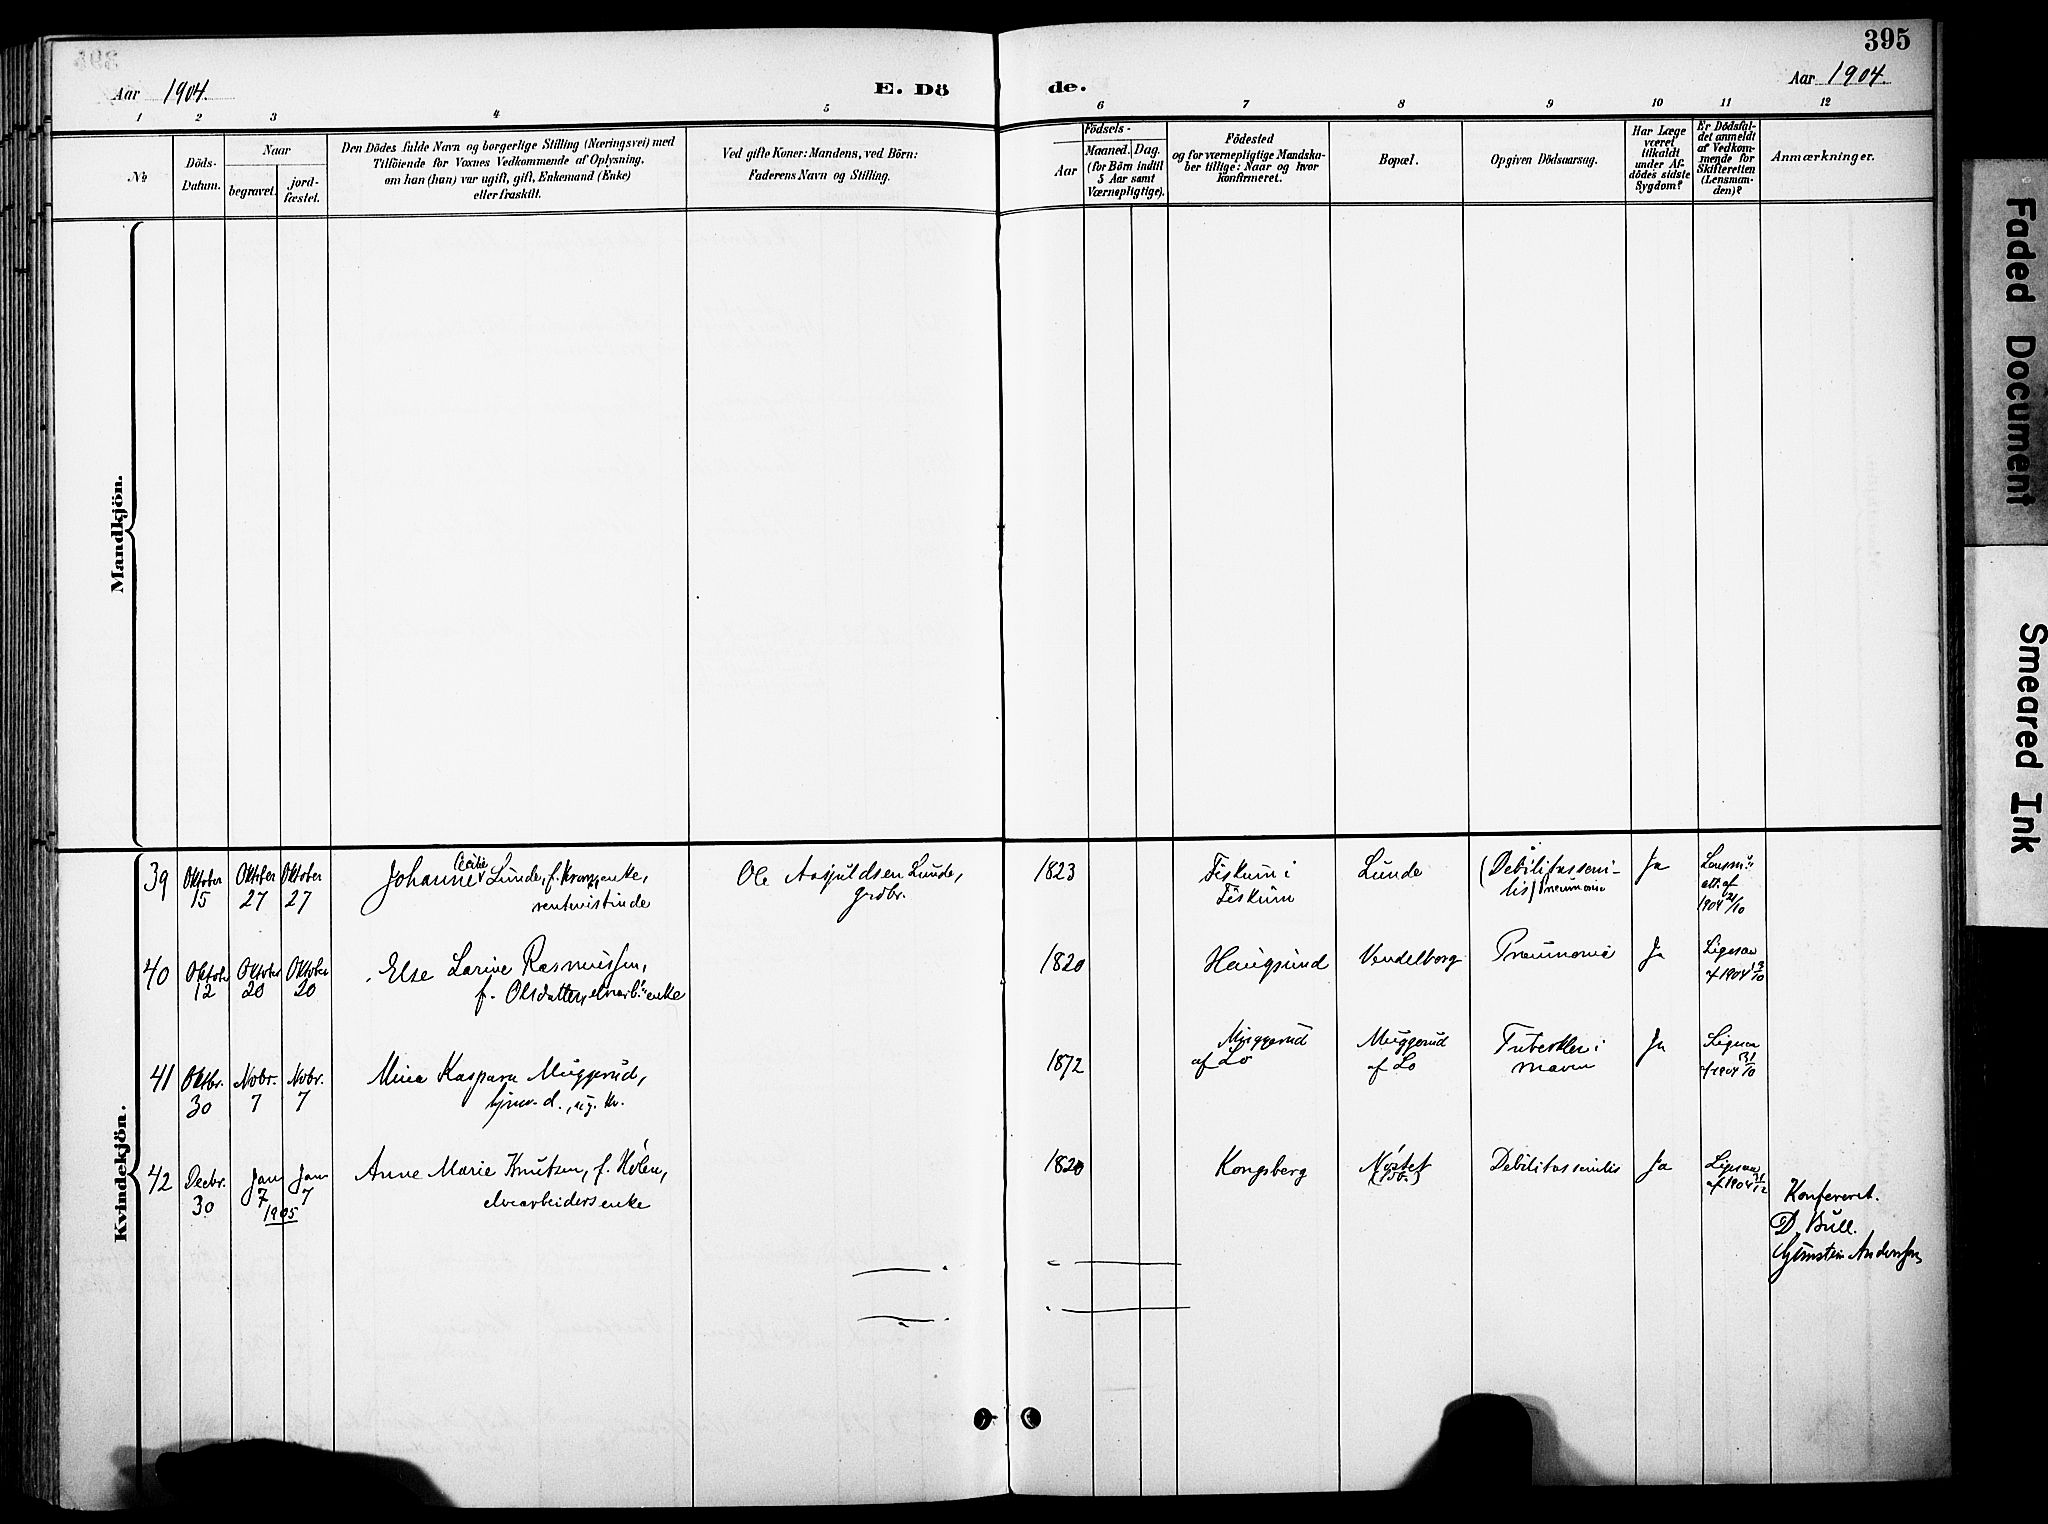 395
Aar 1904.
E. Dö
de.
Aar 1904.
1 2 3 4 5 6 7 8 9 10 11 12
No
Döds-
Datum.
Naar
begravet.
jord-
fæstet.
Den Dödes fulde Navn og borgerlige Stilling (Næringsvei) med
Tilföiende for Voxnes Vedkommende af Oplysning,
om han (hun) var ugift, gift, Enkemand (Enke)
eller fraskilt.
Ved gifte Koner: Mandens, ved Börn:
Faderens Navn og Stilling.
Födsels-
Aar
Maaned. Dag.
(for Börn indtil
5 Aar samt
Værnepligtige).
Födested
og for værnepligtige Mandska-
ber tillige: Naar og hvor
konfirmeret.
Bopæl.
Opgiven Dödsaarsag.
Har Læge
været
tilkaldt
under Af-
dödes sidste
Sygdom?
Er Dödsfal-
det anmeldt
af Vedkom-
mende for
Skifteretten
(Lensman-
den)?
Anmærkninger.
Mandkjön.
Kvindekjön.
39 Oktober 15 Oktber 27 Oktober 27
Johanne Cecilie Lunde, enke,
rentenistinde
Ole Aasjuldsen Lunde,
grdbr.
1823
Fiskum i
Fiskum
Lunde
(Debilitas seni-
lis) Pneumonia
Ja
af
1904 21/10
40 Oktobr 12 Oktober 20 Oktober 20
Else Larine Rasmussen,
f. Olsdatter, enke
1820
Haugsund
Vendelborg
Pneumonia
Ja
af 1904 13/10
41 Oktbr. 30 Novbr. 7 Novbr. 7
Mina Kaspara Muggerud,
ug. kv.
1872
Muggerud
af Lo
Muggerud
af Lo
Tuberkler i
maven
Ja
af 1904 31/10
42 Decbr. 30 Jan 7 Jan 7
1905
Anne Marie Knutsen, f. Hølen,
elvearbeiders enke
1820
Kongsberg
Nøstet
Debilitas senilis
Ja
af 1904 31/12
Konfereret.
D. Bull.
Gunstein Anderssen
Faded Document
Smeared Ink